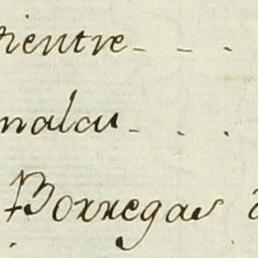 rientre - - .
nalcu - . .
Borregas